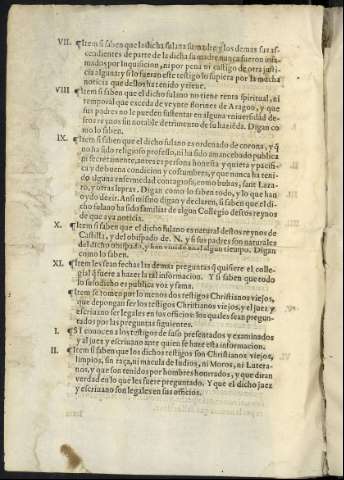 VII. ¶Item si saben que la dicha fulana su madre, y los demas sus as-
cendientes de parte de la dicha su madre nunca fueron infa-
mados por Inquisicion, ni por pena ni castigo de otra justi-
cia alguna: y si lo fueran este testigo lo supiera por la mucha
noticia que destos ha tenido y tiene.
VIII ¶Item si saben que el dicho fulano no tiene renta spiritual, ni
temporal que exceda de veynte florines de Aragon, y que
sus padres no le pueden sustentar en alguna vniuersidad de-
stos reynos sin notable detrimento de su haziēda. Digan co
mo lo saben.
IX. ¶Item si saben que el dicho fulano es ordenado de corona, y q̄
no ha sido religioso professo, ni ha sido amancebado publica
ni secretamente, antes es persona honesta y quieta y pacifi-
ca y de buena condicion y costumbres, y que nunca ha teni-
do alguna enfermedad contagiosa, como bubas, sant Laza-
ro, y otras lepras. Digan como lo saben todo, y lo que han
oydo dezir. Ansi mismo digan y declaren, si saben que el di-
cho fulano ha sido familiar de algun Collegio destos reynos
de que aya noticia.
X. ¶Item si saben que el dicho fulano es natural destos reynos de
Castilla, y del obispado de. N. y si sus padres son naturales
del dicho obispado, y han viuido en el algun tiempo. Digan
como lo saben.
XI. ¶Item les sean fechas las demas preguntas q̄ quisiere el colle-
gial q̄ fuere a hazer la tal informacion. Y si saben que todo
lo susodicho es publica voz y fama.
¶Item se tomen por lo menos dos testigos Christianos viejos,
que depongan ser los testigos Christianos viejos, y el juez y
escriuano ser legales en sus officios: los quales sean pregun-
tados por las preguntas siguientes.
I. ¶SI conocen a los testigos de suso presentados y examinados
y al juez y escriuano ante quien se haze esta informacion.
II. ¶Item si saben que los dichos testigos son Christianos viejos,
limpios, sin raça, ni macula de Iudios, ni Moros, ni Lutera-
nos, y que son tenidos por hombres honrrados, y que diran
verdad en lo que les fuere preguntado. Y que el dicho juez
y escriuano son legales en sus officios.